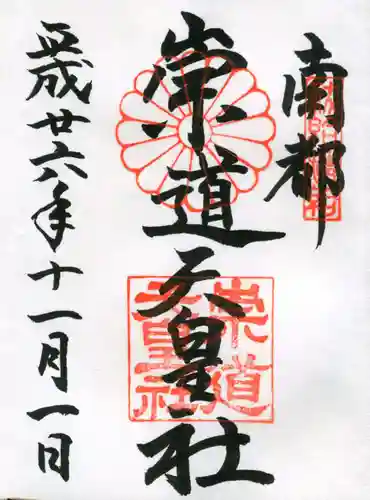 南都
崇道天皇社
平成廿六年十一月一日
崇道
天皇社